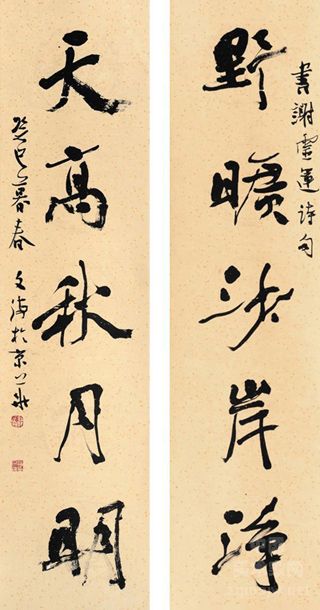 書謝靈運诗句
野曠沙岸淨
天高秋月明
癸巳暮春 文海於京華